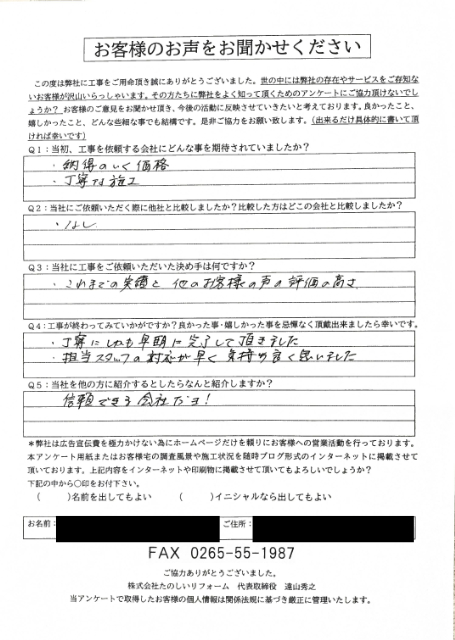 お客様のお声をお聞かせください
この度は弊社に工事をご用命頂き誠にありがとうございました。世の中には弊社の存在やサービスをご存知ない
お客様が沢山いらっしゃいます。その方たちに弊社をよく知って頂くためのアンケートにご協力頂けないでし
ょうか？お客様のご意見をお聞かせ頂き、今後の活動に反映させていきたいと考えております。良かったこと、
嬉しかったこと、どんな些細な事でも結構です。是非ご協力をお願い致します。（出来るだけ具体的に書いて頂
ければ幸いです）
Q1：当初、工事を依頼する会社にどんな事を期待されていましたか？
・納得のいく価格
・丁寧な施工
Q2：当社にご依頼いただく際に他社と比較しましたか？比較した方はどこの会社と比較しましたか？
・なし
Q3：当社に工事をご依頼いただいた決め手は何ですか？
・これまでの実績と他のお客様の声の評価の高さ
Q4：工事が終わってみていかがですか？良かった事・嬉しかった事を忌憚なく頂戴出来ましたら幸いです。
・丁寧にしかも早期に完了して頂きました
・担当スタッフの対応が早く気持ち良く思いました
Q5：当社を他の方に紹介するとしたらなんと紹介しますか？
信頼できる会社だヨ！
＊弊社は広告宣伝費を極力かけない為にホームページだけを頼りにお客様への営業活動を行っております。
本アンケート用紙またはお客様宅の調査風景や施工状況を随時ブログ形式のインターネットに掲載させて
頂いております。上記内容をインターネットや印刷物に掲載させて頂いてもよろしいでしょうか？
下記の中から○印をお付下さい。
（　　）名前を出してもよい　（　　）イニシャルなら出してもよい
お名前：　ご住所：
FAX 0265-55-1987
ご協力ありがとうございました。
株式会社たのしいリフォーム　代表取締役　遠山秀之
当アンケートで取得したお客様の個人情報は関係法規に基づき厳正に管理いたします。